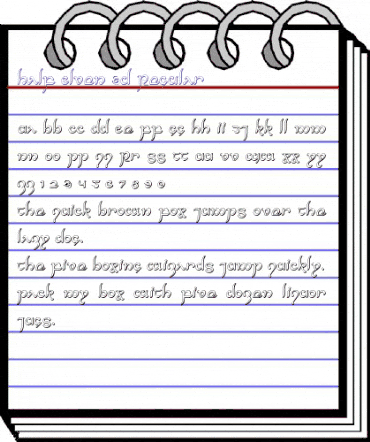 half elven 3d Regular
aa bb cc dd ee ff gg hh ii jj kk ll mm
nn oo pp qq Rr ss tt uu vv ww xx yy
zz 1 2 3 4 5 6 7 8 9 0
the quick brown fox jumps over the
lazy dog.
the five boxing wizards jump quickly.
pack my box with five dozen liquor
jugs.